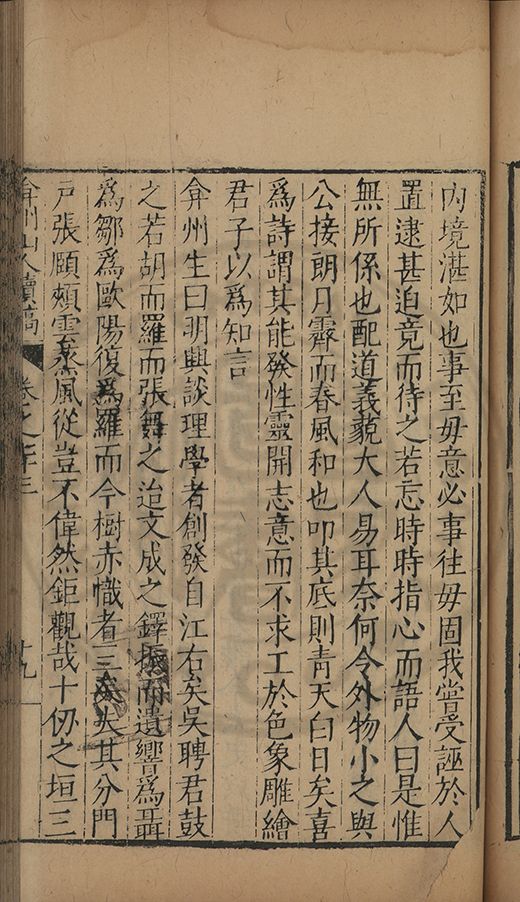 內境湛如也事至毋意必事往毋固我嘗受誣於人
置逮甚迫竟而待之若忘時時指心而語人曰是惟
無所係也配道義藐大人易耳奈何令外物小之與
公接朗月霽而春風和也叩其底則青天白日矣喜
為詩謂其能發性靈開志意而不求工於色象雕繪
君子以為知言
弇州生曰明興談理學者創發自江右矣吳聘君鼓
之若胡而羅而張舞之迨文成之鐸振而遺響為聶
為鄒為歐陽復為羅而今樹赤幟者三矣其分門
戶張頤頰雲蒸風從豈不偉然鉅觀哉十仞之垣三
弇州山人續稿 卷之 三 十九